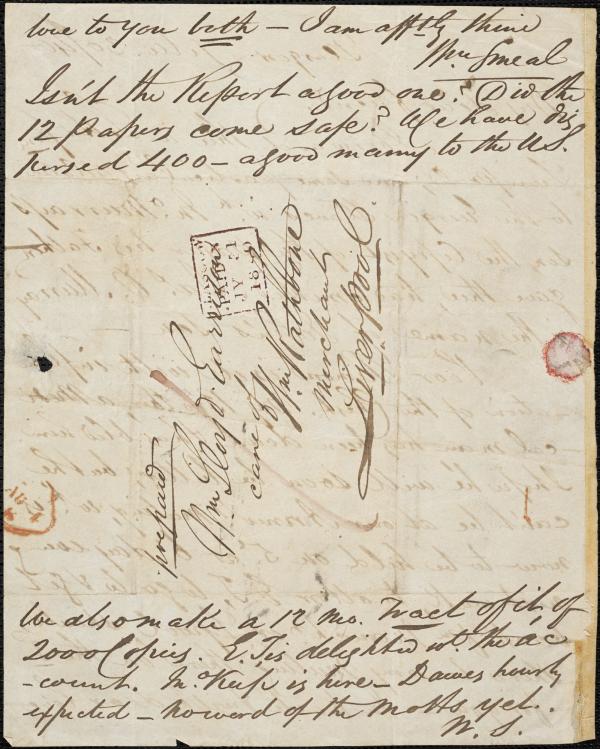 love to you both – I am afftly thine
Wm Smeal
Isn't the Report a good one? Did the
12 Papers come safe? We have dis
persed 400 – a good many to the U.S.
GLASGOW
PAID
JY 31
1840
prepaid
Wm Lloyd Garrison
care of
Wm Rathbone
Merchant
Liverpool
We also make a 12 mo. Tract of it, of
2000 Copies. E. T. is delighted wt. the ac
-count. is here – Dawes hourly
expected – no word of the Motts yet.
W. S.